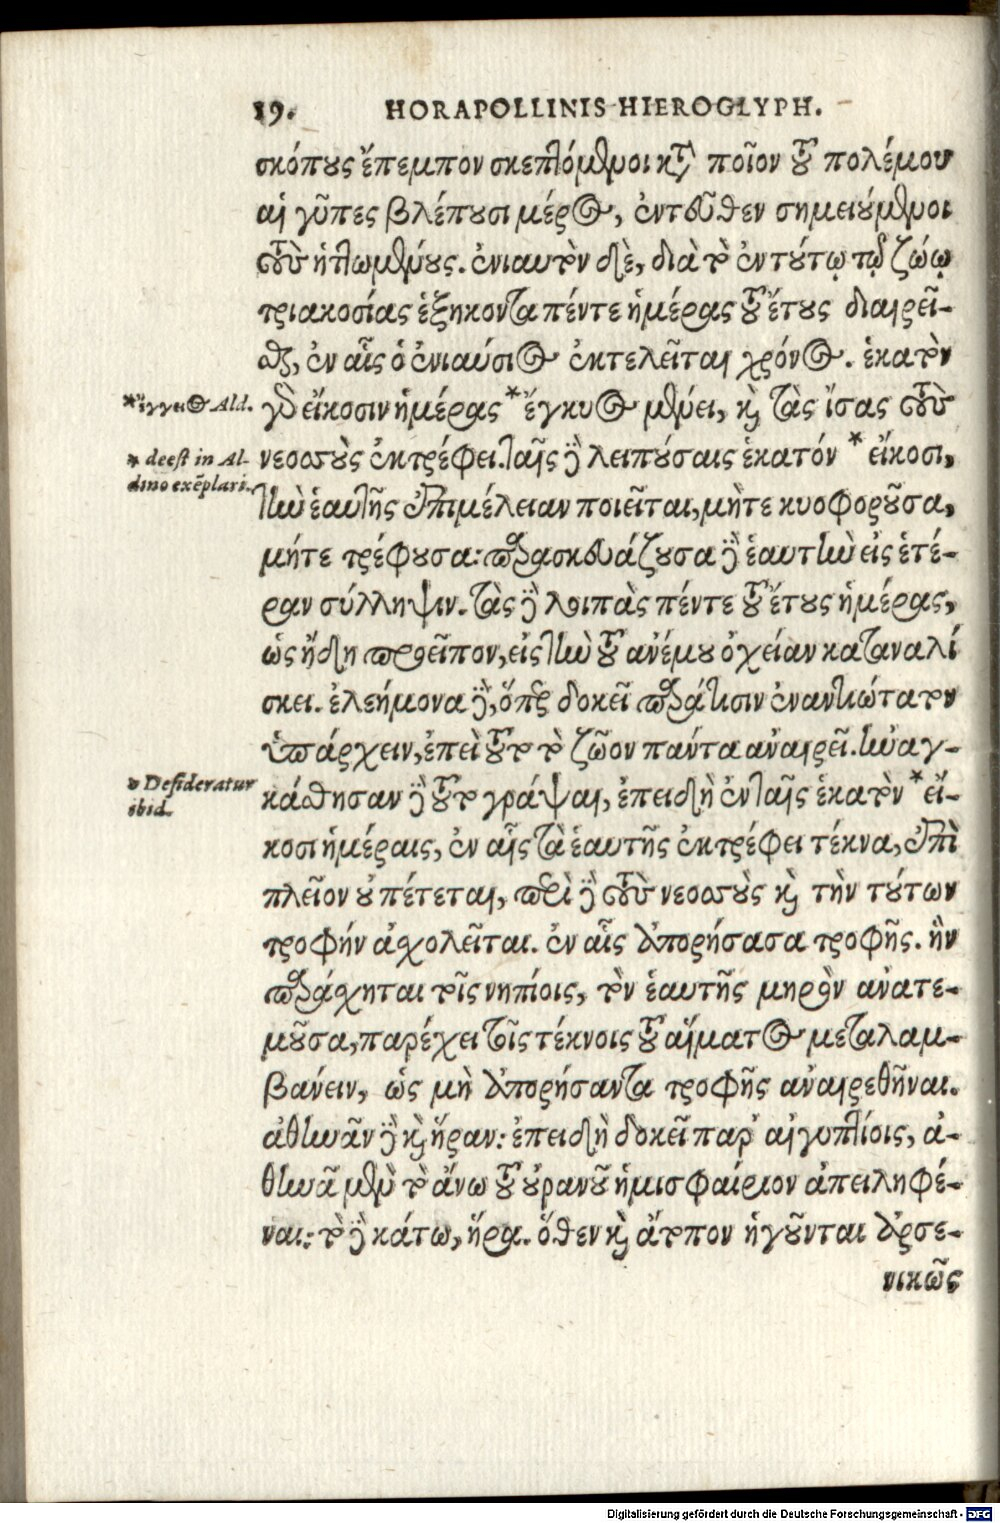 19. HORAPOLLINIS HIEROGLYPH.
σκόπους ἔπεμπον σκεπτόμενοι κατὰ ποῖον τοῦ πολέμου
αἱ γῦπες βλέπουσι μέρος, ἐντεῦθεν σημειούμενοι
τοὺς ἡττωμένους. ἐνιαυτὸν δὲ, διὰ τὸ ἐν τούτῳ τῷ ζώῳ
τριακοσίας ἑξηκοντα πέντε ἡμέρας τοῦ ἔτους διαιρεῖ-
σθαι, ἐν αἷς ὁ ἐνιαύσιος ἐκτελεῖται χρόνος. ἑκατὸν
*ἔγγειος Ald. γὸ εἴκοσιν ἡμέρας *ἔγκυος μένει, καὶ τὰς ἴσας τοὺς
* deest in Al- νεοσσοὺς ἐκτρέφει. ταῖς δὲ λειπούσαις ἑκατόν * εἴκοσι,
dino exẽplari. τὴν ἑαυτῆς ἐπιμέλειαν ποιεῖται, μήτε κυοφοροῦσα,
μήτε τρέφουσα: παρασκευάζουσα δὲ ἑαυτὴν εἰς ἑτέ-
ραν σύλληψιν. τὰς δὲ λοιπὰς πέντε τοῦ ἔτους ἡμέρας,
ὡς ἤδη προεῖπον, εἰς τὴν τοῦ ἀνέμου ὀχείαν καταναλί
σκει. ἐλεήμονα δὲ, ὅπερ δοκεῖ παράτισιν ἐναντιώτατον
ὑπάρχειν, ἐπεὶ τοῦτο τὸ ζῶον παντα ἀναιρεῖ. ἠναγ-
* Desideratur κάσθησαν δὲ τοῦτο γράψαι, ἐπειδὴ ἐν ταῖς ἑκατὸν * εἴ-
ibid. κοσι ἡμέραις, ἐν αἷς τὰ ἑαυτῆς ἐκτρέφει τέκνα, ἐπὶ
πλεῖον οὐ πέτεται, περὶ δὲ τοὺς νεοσσοὺς καὶ τὴν τούτων
τροφήν ἀσχολεῖται. ἐν αἷς ἀπορήσασα τροφῆς. ἣν
παράσχηται τοῖς νηπίοις, τὸν ἑαυτῆς μηρὸν ἀνατε-
μοῦσα, παρέχει τοῖς τέκνοις τοῦ αἵματος μεταλαμ-
βάνειν, ὡς μὴ ἀπορήσαντα τροφῆς ἀναιρεθῆναι.
ἀθηνᾶν δὲ καὶ ἥραν: ἐπειδὴ δοκεῖ παρ' αἰγυπτίοις, ἀ-
θηνᾶ μὲν τὸ ἄνω τοῦ οὐρανοῦ ἡμισφαίριον ἀπειληφέ-
ναι: τὸ δὲ κάτω, ἥρα. ὅθεν καὶ ἄτοπον ἡγοῦνται ἀρσε-
νικῶς
Digitalisierung gefördert durch die Deutsche Forschungsgemeinschaft - DFG